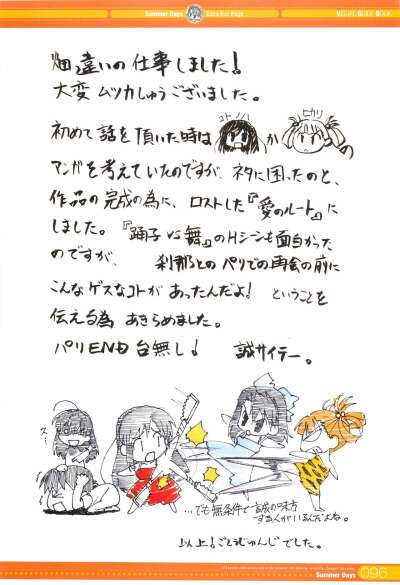 Summer Days
Extra Hot Page
VISUAL GUIDE BOOK
畑違いの仕事しました!
大変ムツカしゅうございました。
コトノハ
ヒカリ
初めて話を頂いた時は か の
マンガを考えていたのですが、ネタに困ったのと、
作品の完成の為に、ロストした『愛のルート』に
しました。『踊子VS舞』のHシーンも面白かった
のですが、 刹那とのパリでの再会の前に
こんなゲスなコトがあったんだよ! ということを
伝える為 あきらめました。
パリEND台無し! 誠サイテー。
ス…
…でも無条件で誠の味方
する人がいるんだよね。
以上!ごとうじゅんじでした。
Summer Days
096